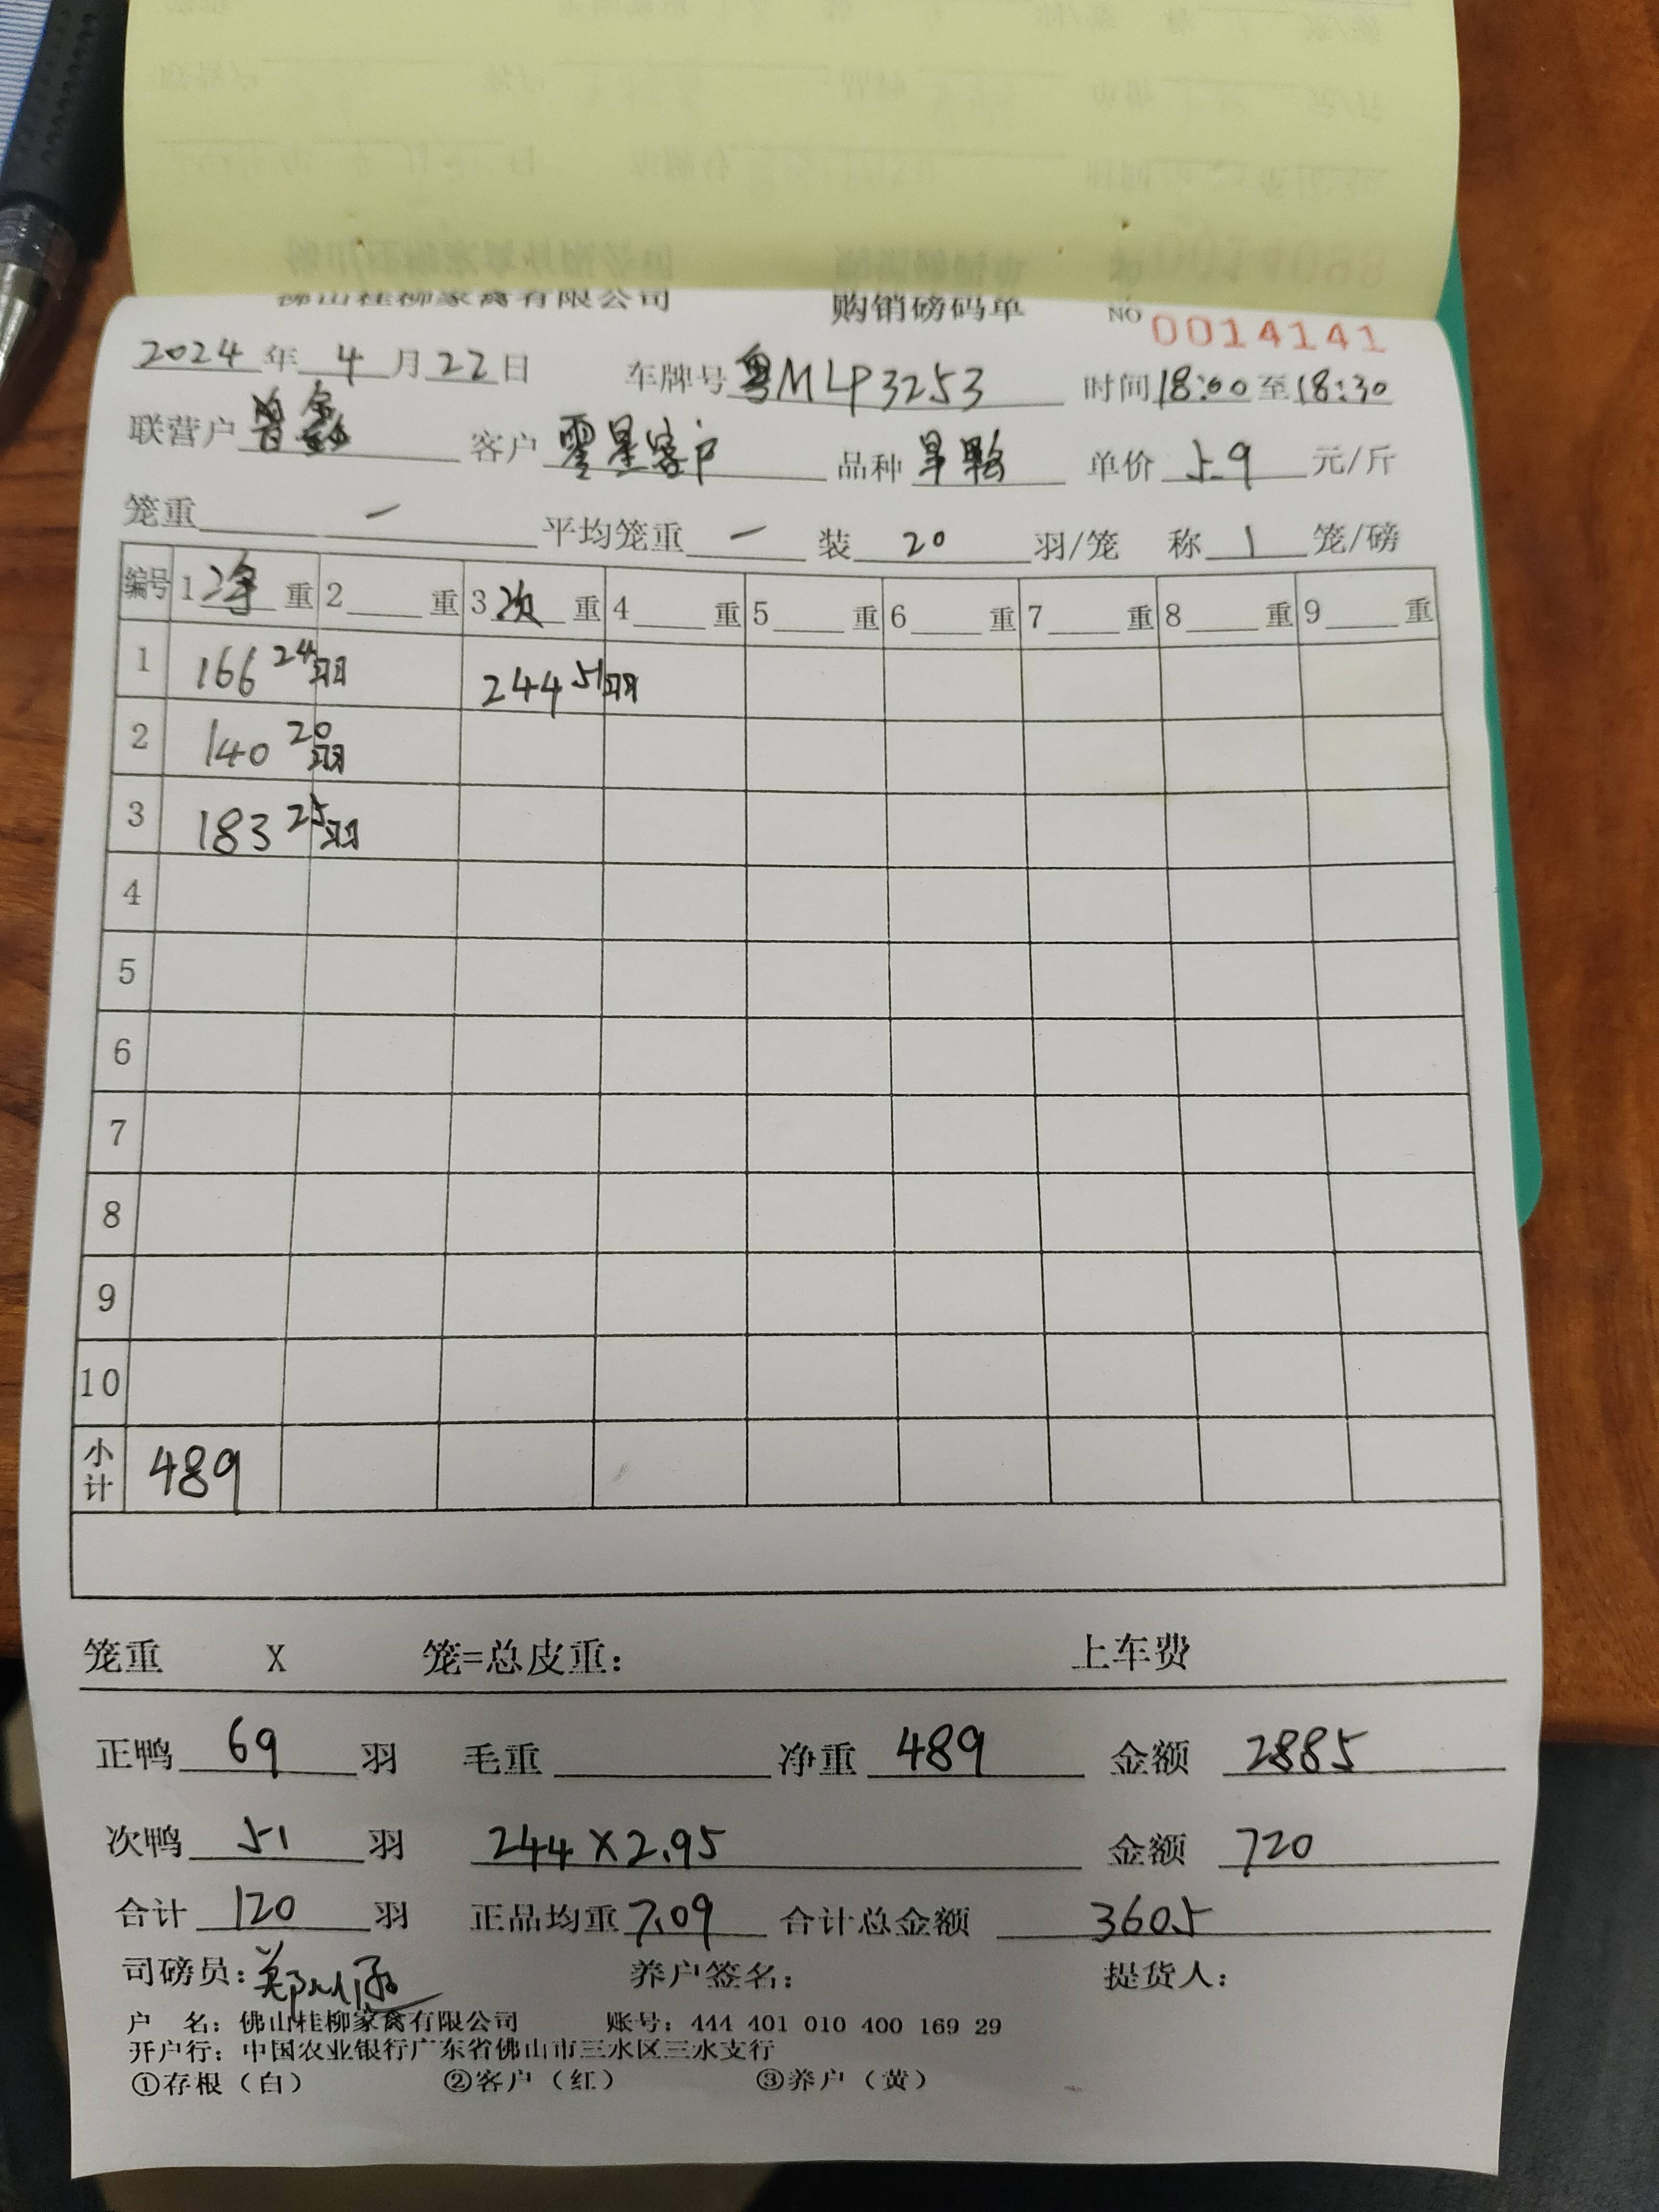 佛山桂柳家禽有限公司 购销磅码单 NO 0014141
2024年4月22日 车牌号粤MLP3253 时间18:00至18:30
联营户曾鑫 客户零星客户 品种旱鸭 单价5.9元/斤
笼重 一 平均笼重 一 装 20 羽/笼 称 1 笼/磅
编号 1净重 2重 3次重 4重 5重 6重 7重 8重 9重
1 166 24羽 244 51羽
2 140 20羽
3 183 25羽
4
5
6
7
8
9
10
小计 489
笼重 X 笼=总皮重： 上车费
正鸭 69 羽 毛重 净重 489 金额 2885
次鸭 51 羽 244×2.95 金额 720
合计 120 羽 正品均重 7.09 合计总金额 3605
司磅员：郑 养户签名： 提货人：
户 名：佛山桂柳家禽有限公司 账号：444 401 010 400 169 29
开户行：中国农业银行广东省佛山市三水区三水支行
①存根（白） ②客户（红） ③养户（黄）